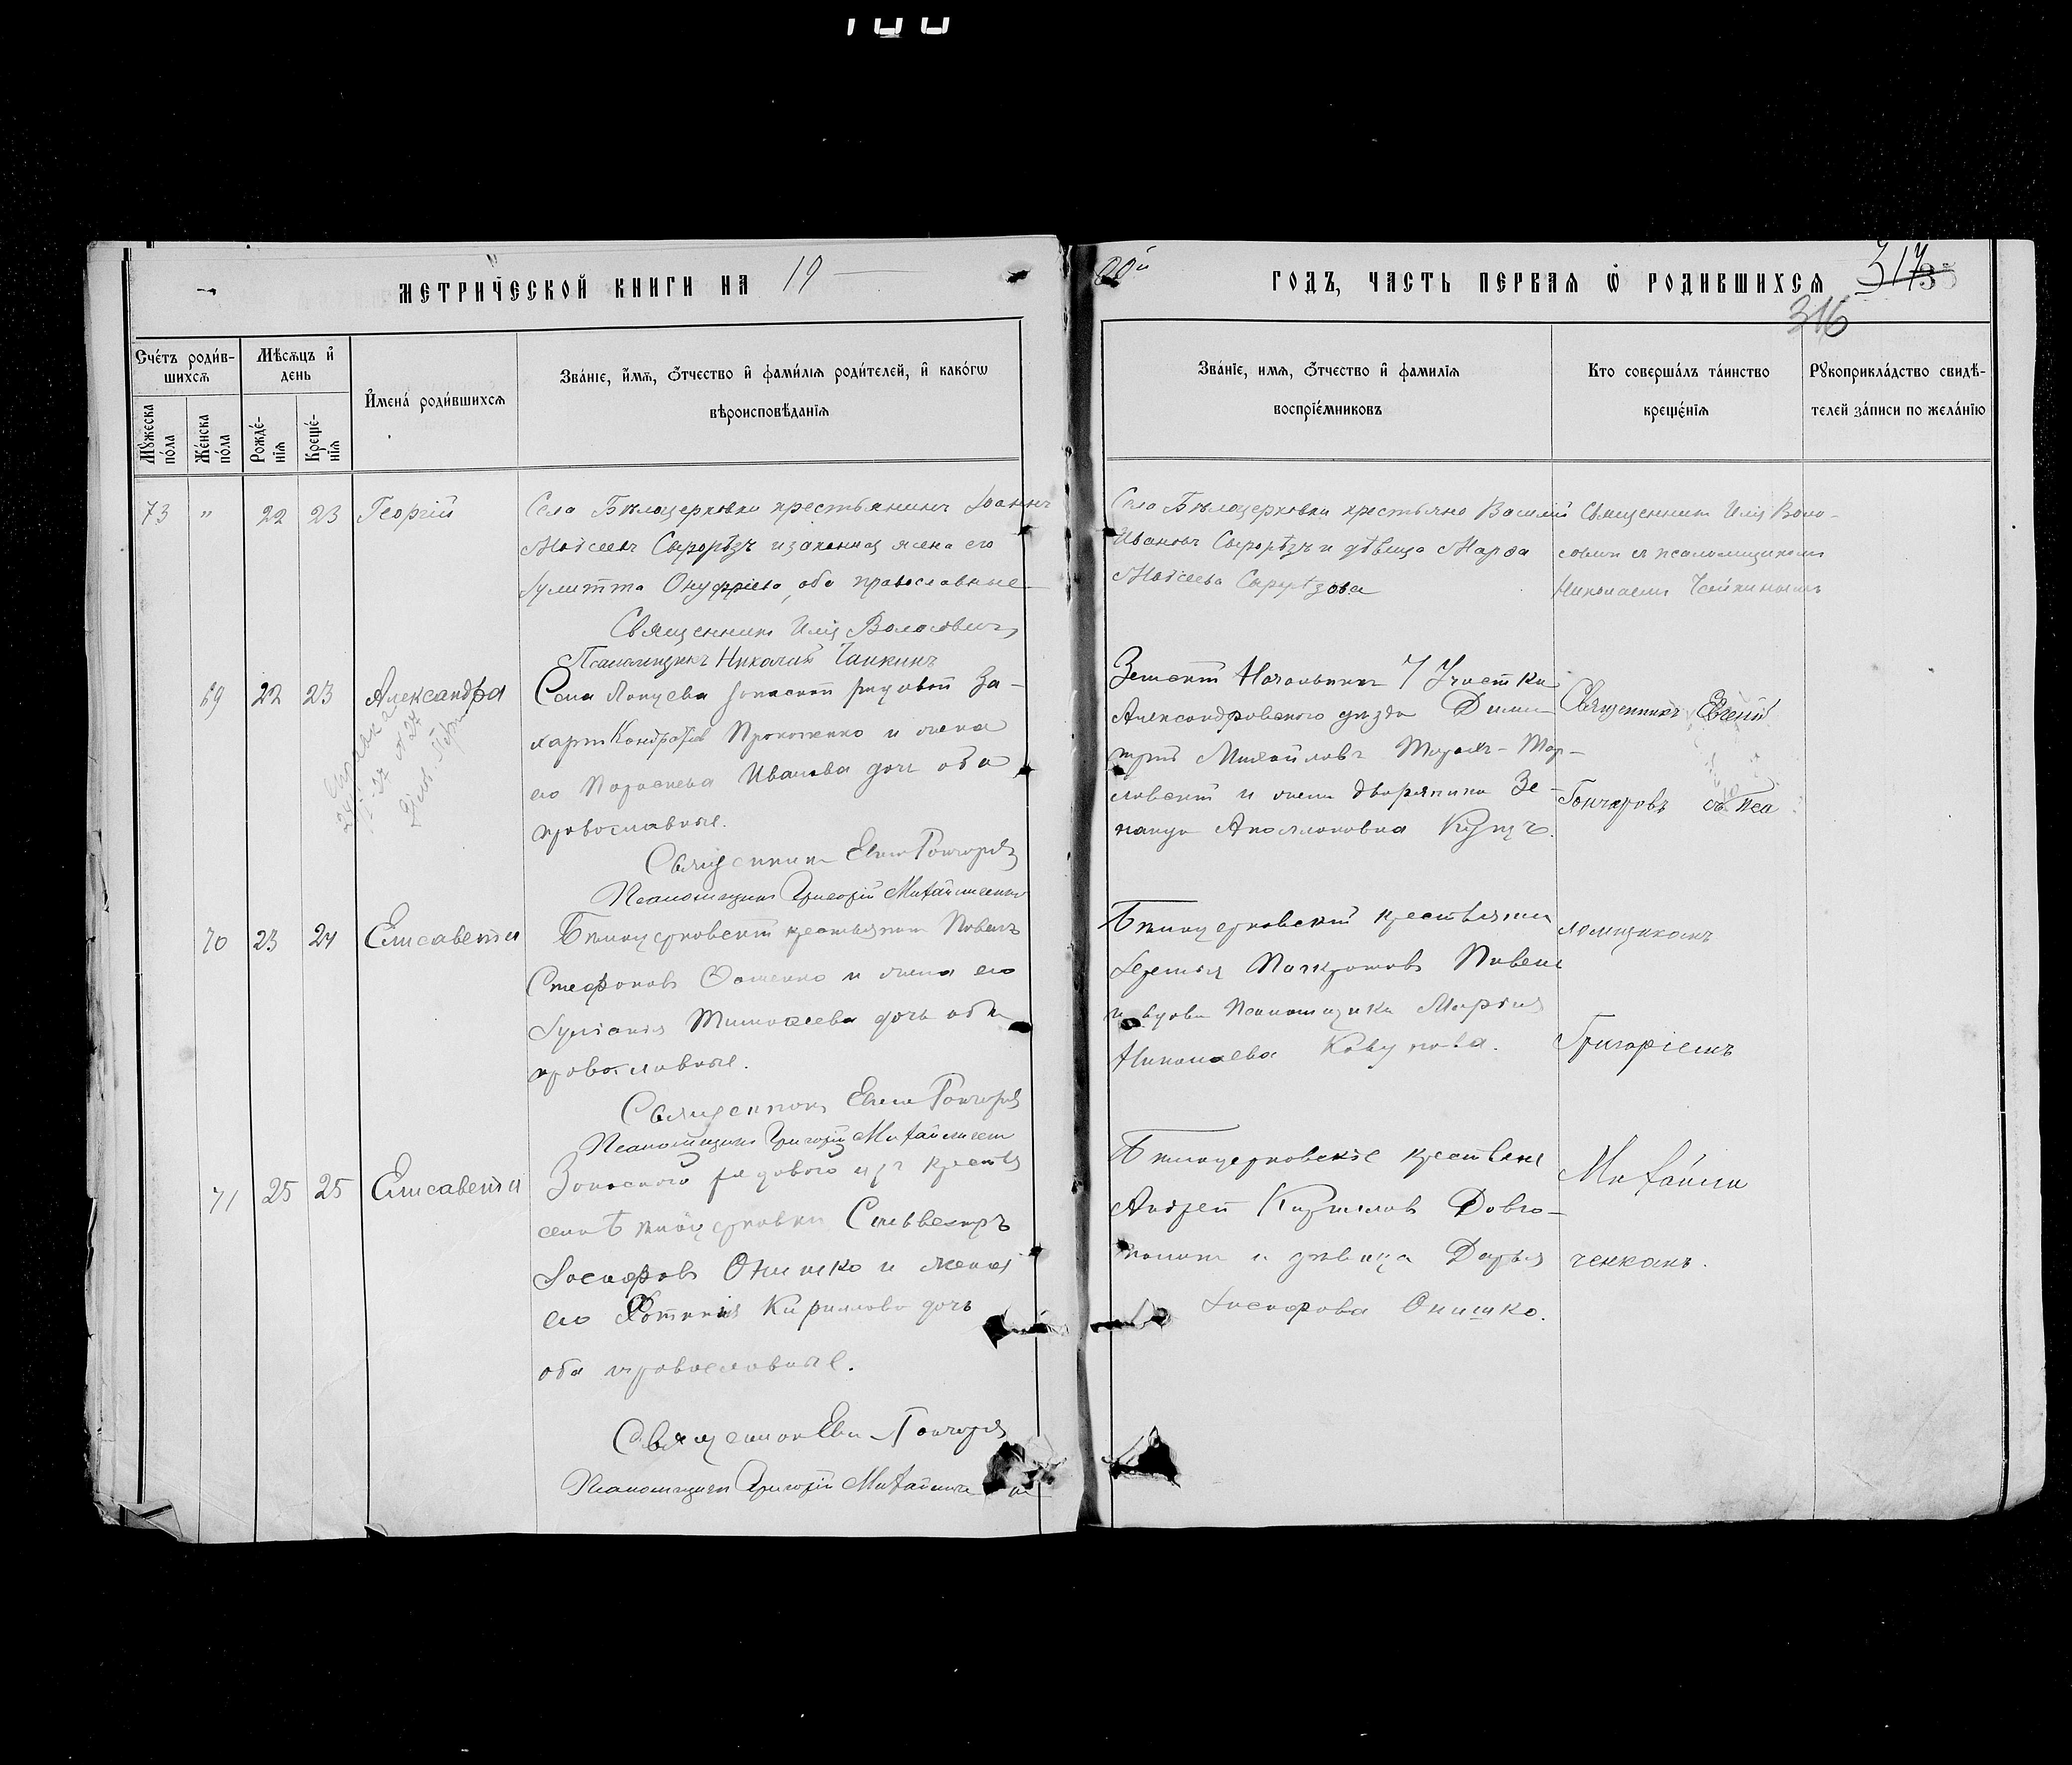 МЕТРИЧЕСКОЙ КНИГИ НА 19
ГОДЪ, ЧАСТЬ ПЕРВАЯ Ѿ РОДИВШИХСЯ
317
316
Сче́тъ роди́в-
шихсѧ
Мѣсѧцъ и҆
де́нь
Мꙋ́жеска по́ла
Же́нска по́ла
Рожде́-
нїѧ
Креще́-
нїѧ
И҆мена̀ роди́вшихсѧ
Зва́нїе, и҆́мѧ, ѻ҆́тчество и҆ фами́лїѧ роди́телей, и҆ како́гѡ
вѣроисповѣ́данїѧ
Зва́нїе, имѧ, ѻ҆́тчество и҆ фамилїѧ
воспрїе́мниковъ
Кто соверша́лъ та́инство
креще́нїѧ
Рꙋкоприкла́дство свидѣ́-
телей за́писи по жела́нїю
73 " 22 23 Георгій
Села Бѣлоцерковки крестьянинъ Іоаннъ
Моѵсеевъ Сыророѣзъ и законная жена его
Іулитта Онуфріева, оба православные
Священникъ Илія Волосовичъ
Псаломщикъ Николай Чайкинъ
Села Бѣлоцерковки крестьяне Василій
Ивановъ Сыророѣзъ и дѣвица Марѳа
Моѵсеева
Священникъ Илія Воло-
совичъ съ псаломщикомъ
Николаемъ Чайкинымъ
69 22 23 Александра
Села запасной рядовой За-
харій Кондратовъ Прокопенко и жена
его Параскева Иванова дочь оба
православные.
Священникъ Евгеній Гончаровъ
Псаломщикъ Григорій Михайличенко
Земскій Начальникъ 7 Участка
Александровскаго уѣзда Дими-
трій Михайловъ
и жена дворянина Зе-
наида Аполлоновна Кунцъ.
Священникъ Евгеній
Гончаровъ съ пса
70 23 24 Елисавета
Бѣлоцерковскій крестьянинъ Павелъ
Стефановъ и жена его
Іуліанія Тимоѳеева дочь оба
православные.
Священникъ Евгеній Гончаровъ
Псаломщикъ Григорій Михайличенко
Бѣлоцерковскій крестьянинъ
Іеремія Панкратовъ
и вдова псаломщика Марѳія
Николаева
ломщикомъ
Григоріемъ
71 25 25 Елисавета
Запасного рядового изъ крестьянъ
села Бѣлоцерковки Сильвестръ
Іосифовъ Онишко и жена
его Фотинія Кириллова дочь
оба православные.
Священникъ Евгеній Гончаровъ
Псаломщикъ Григорій Михайличенко
Бѣлоцерковскіе крестьяне
Андрей Кирилловъ Довго-
и дѣвица Дарья
Іосифова Онишко.
Михайли
ченкомъ.